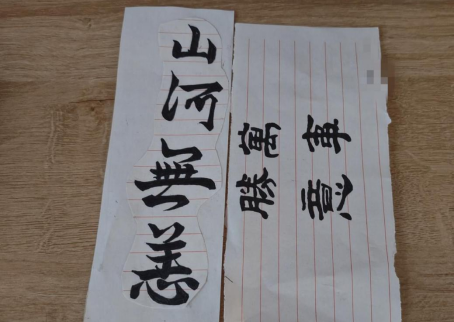 山河無恙
萬事
勝意